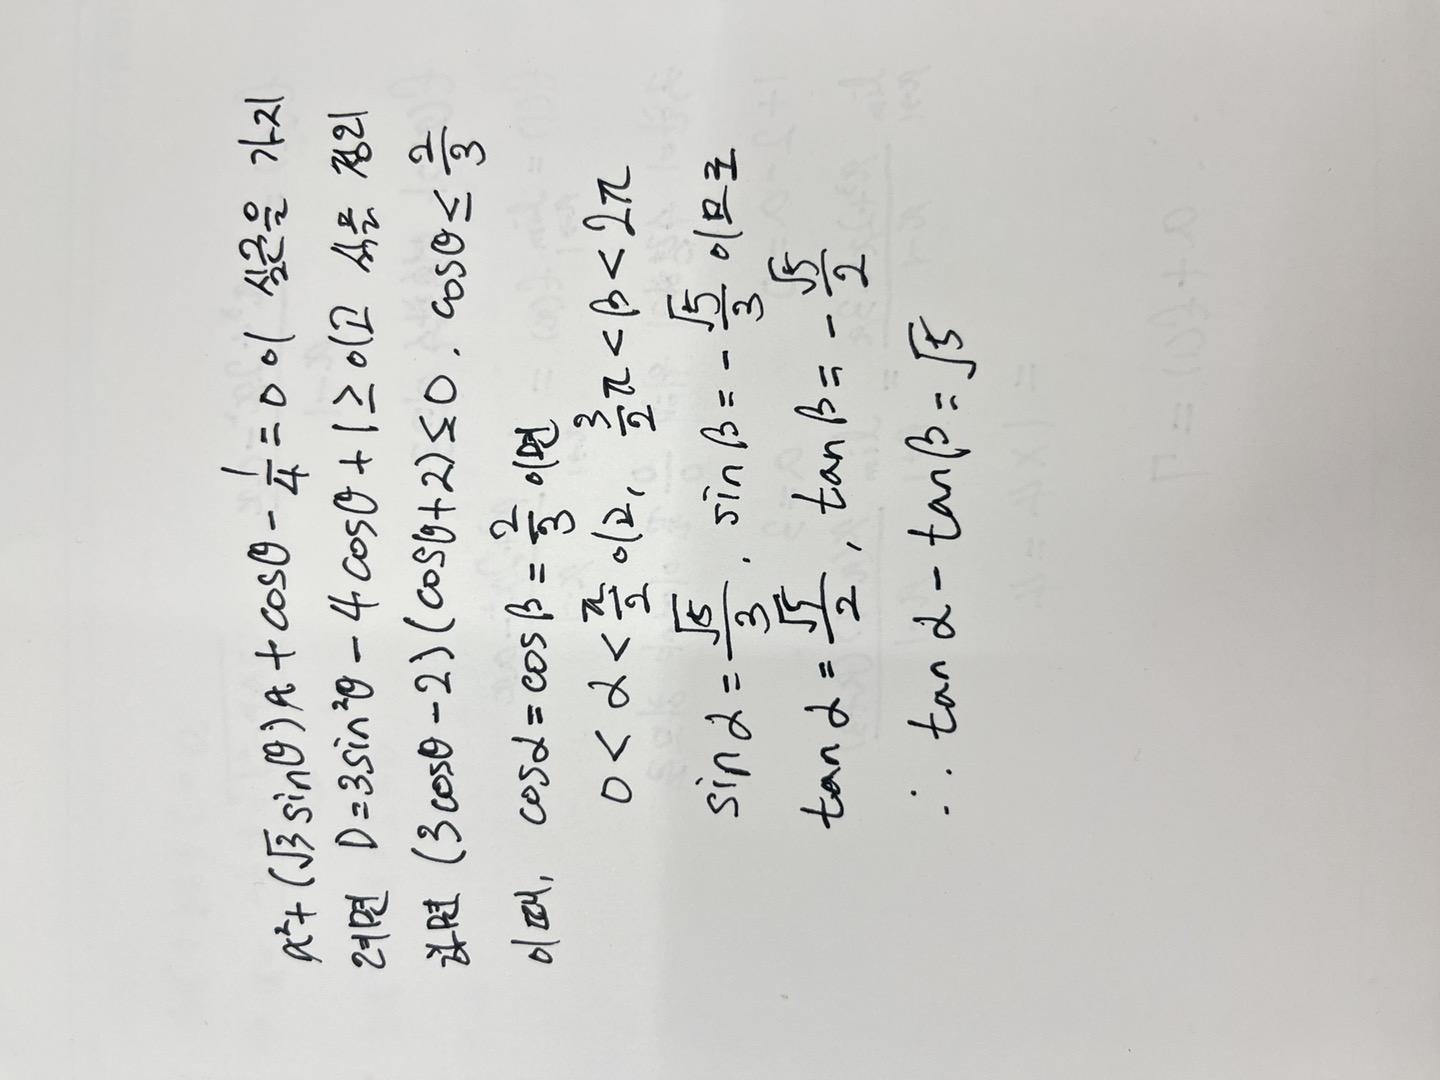 x²+(√3 sinθ)x+cosθ-1/4=0 이 실근을 가지
려면 D=3sin²θ-4cosθ+1≥ 이고 식을 정리
하면 (3cosθ-2)(cosθ+2)≤0. cosθ≤2/3
이때, cosα=cosβ=2/3 이면
0<α<π/2 이고, 3/2π<β<2π
sinα=√5/3. sinβ=-√5/3 이므로
tanα=√5/2, tanβ=-√5/2
∴ tanα-tanβ=√5